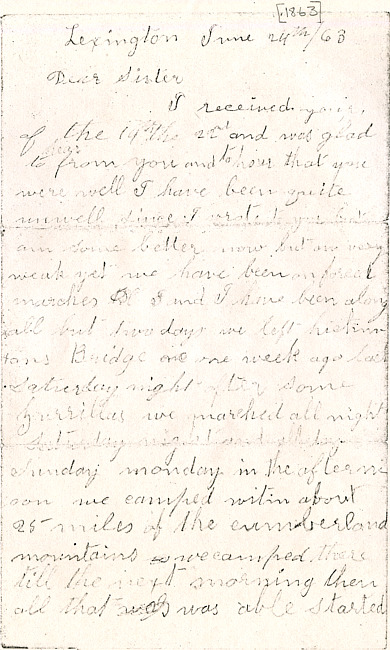 [1863]
Lexington June 24th/63
Dear Sister
I received yours
of the 14th the 22nd and was glad
to hear from you and to hear that you
were well I have been quite
unwell since I wrote you but
am some better now but am very
weak yet we have been on forced
marches & I and I have been along
all but two days we left hickm
tons Bridge one week ago last
Saturday night after some
Gurrillas we marched all night
Saturday night and all day
Sunday monday in the afterno
oon we camped witin about
25 miles of the cumberland
mountains we camped there
till the next morning then
all that was able started